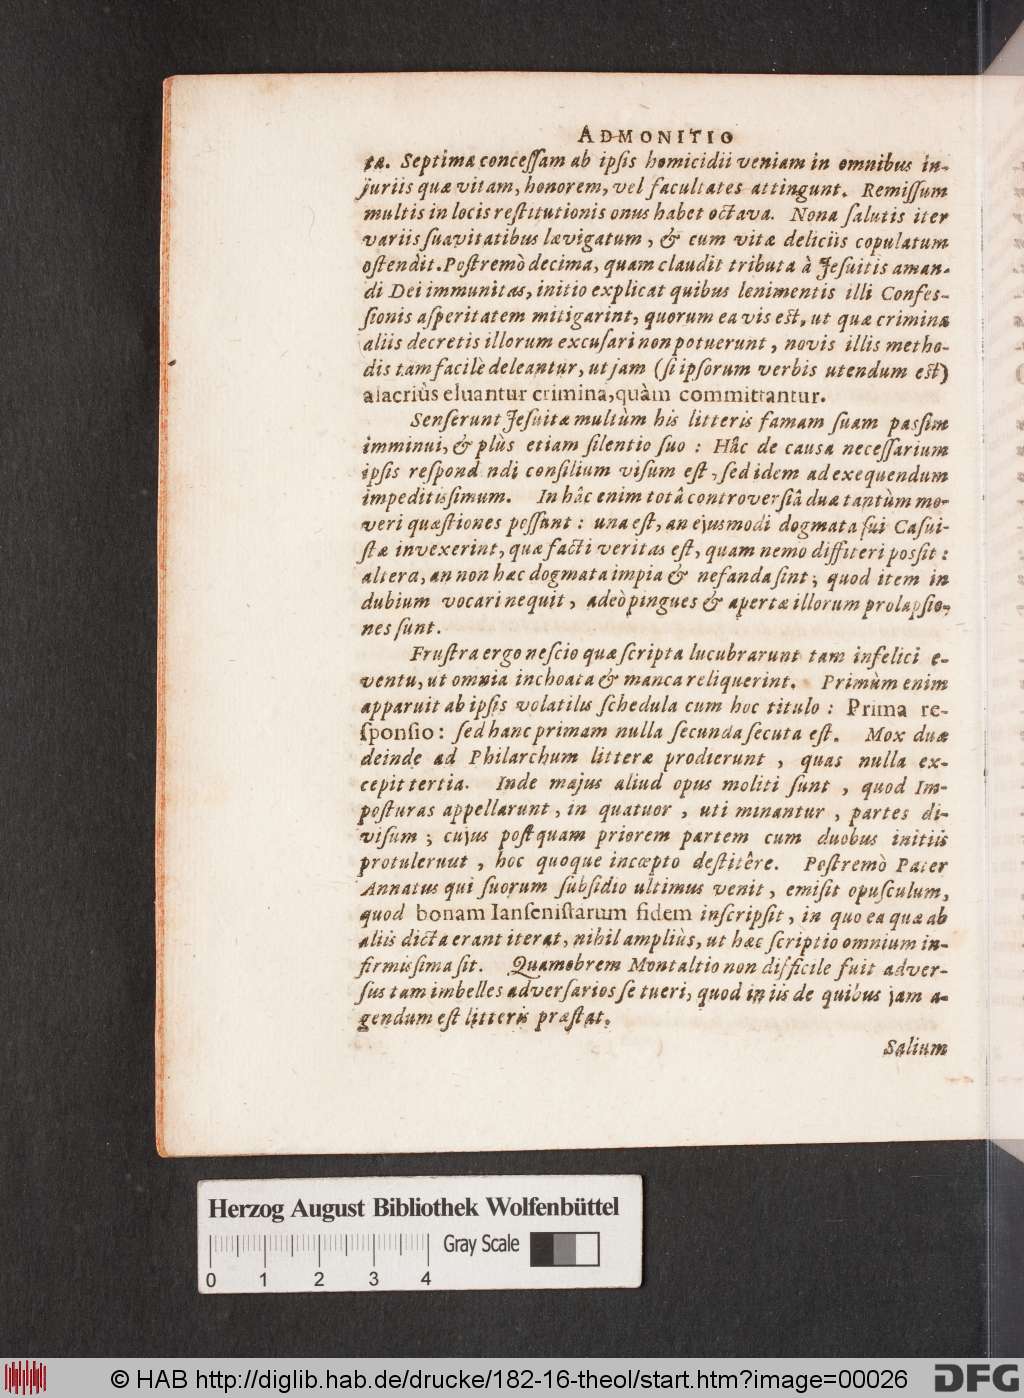 ADMONITIO
ta. Septima conceſſam ab ipſis homicidii veniam in omnibus in-
juriis quæ vitam, honorem, vel facultates attingunt. Remiſſum
multis in locis reſtitutionis onus habet octava. Nona ſalutis iter
variis ſuavitatibus lævigatum, & cum vitæ deliciis copulatum
oſtendit. Poſtremò decima, quam claudit tributa à Jeſuitis aman-
di Dei immunitas, initio explicat quibus lenimentis illi Confeſ-
ſionis aſperitatem mitigarint, quorum ea vis eſt, ut quæ crimina
aliis decretis illorum excuſari non potuerunt, novis illis metho-
dis tam facilè deleantur, ut jam (ſi ipſorum verbis utendum eſt)
alacriùs eluantur crimina, quàm committantur.
Senſerunt Jeſuitæ multùm his litteris famam ſuam paſſim
imminui, & plùs etiam ſilentio ſuo : Hâc de cauſa neceſſarium
ipſis reſpond ndi conſilium viſum eſt, ſed idem ad exequendum
impeditiſſimum. In hâc enim totâ controverſiâ duæ tantùm mo-
veri quæſtiones poſſunt : una eſt, an ejusmodi dogmata ſui Caſui-
ſtæ invexerint, quæ facti veritas eſt, quam nemo diffiteri poſſit :
altera, an non hæc dogmata impia & nefanda ſint ; quod item in
dubium vocari nequit, adeò pingues & apertæ illorum prolapſio-
nes ſunt.
Fruſtra ergo neſcio quæ ſcripta lucubrarunt tam infelici e-
ventu, ut omnia inchoata & manca reliquerint. Primùm enim
apparuit ab ipſis volatilis ſchedula cum hoc titulo : Prima re-
ſponſio : ſed hanc primam nulla ſecunda ſecuta eſt. Mox duæ
deinde ad Philarchum litteræ prodierunt, quas nulla ex-
cepit tertia. Inde majus aliud opus moliti ſunt, quod Im-
poſturas appellarunt, in quatuor, uti minantur, partes di-
viſum ; cujus poſtquam priorem partem cum duobus initiis
protuleruut, hoc quoque incœpto deſtitêre. Poſtremò Pater
Annatus qui ſuorum ſubſidio ultimus venit, emiſit opuſculum,
quod bonam Ianſeniſtarum fidem inſcripſit, in quo ea quæ ab
aliis dicta erant iterat, nihil ampliùs, ut hæc ſcriptio omnium in-
firmiſſima ſit. Quamobrem Montaltio non difficile fuit adver-
ſus tam imbelles adverſarios ſe tueri, quod in iis de quibus jam a-
gendum eſt litteris præſtat.
Salium
Herzog August Bibliothek Wolfenbüttel
0 1 2 3 4 Gray Scale
© HAB http://diglib.hab.de/drucke/182-16-theol/start.htm?image=00026
DFG